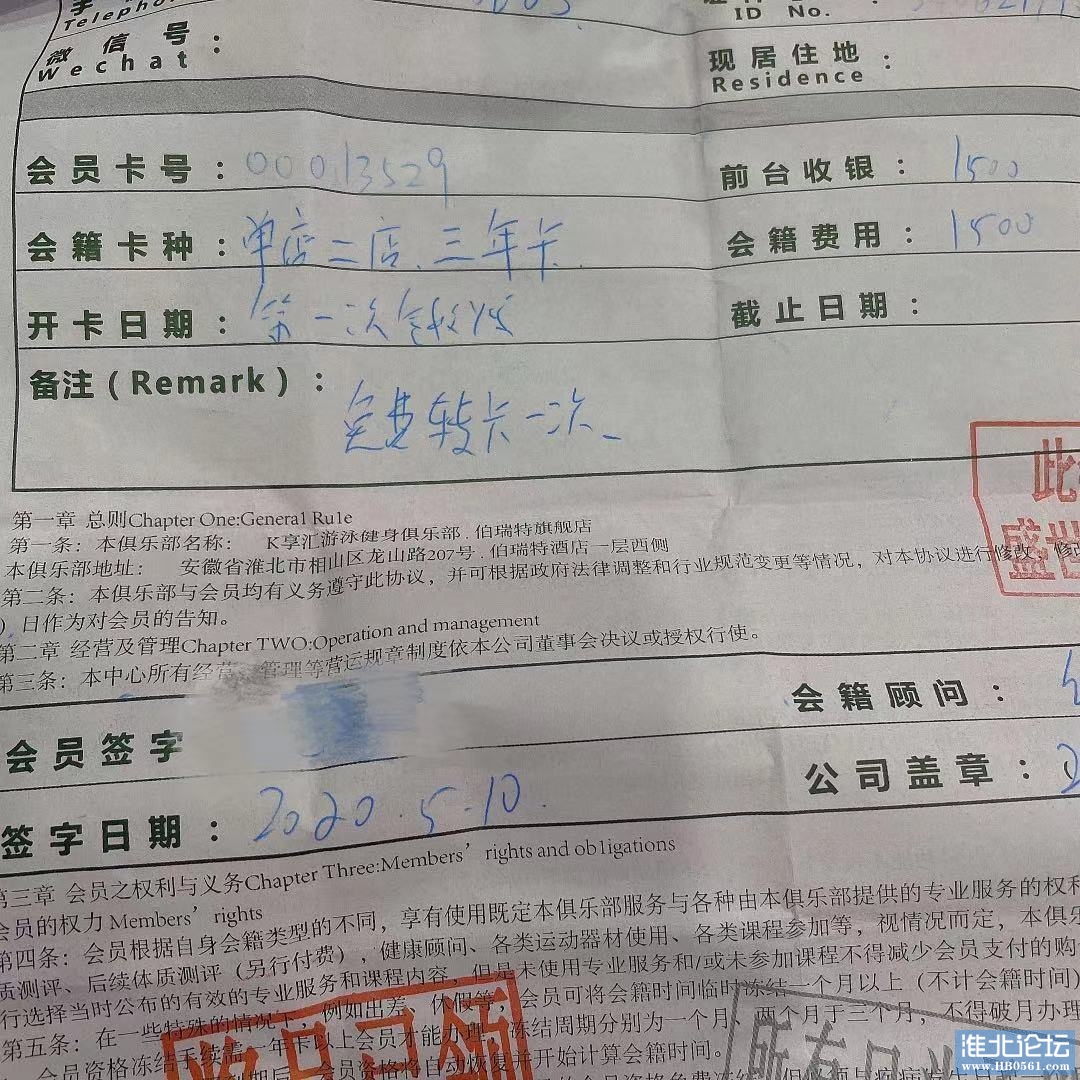 Telephone
ID No.
微信号：
Wechat
现居住地：
Residence
会员卡号：00013529
前台收银：1500
会籍卡种：单店二店、三年卡
会籍费用：1500
开卡日期：第一次
截止日期：
备注（Remark）：
免费转卡一次
第一章 总则Chapter One:General Rule
第一条：本俱乐部名称： K享汇游泳健身俱乐部.伯瑞特旗舰店
本俱乐部地址： 安徽省淮北市相山区龙山路207号.伯瑞特酒店一层西侧
第二条：本俱乐部与会员均有义务遵守此协议，并可根据政府法律调整和行业规范变更等情况，对本协议进行修改，修改
）日作为对会员的告知。
第二章 经营及管理Chapter TWO:Operation and management
第三条：本中心所有经营、管理等营运规章制度依本公司董事会决议或授权行使。
此
盛世
会员签字
会籍顾问：
签字日期：2020.5.10.
公司盖章：
第三章 会员之权利与义务Chapter Three:Members' rights and obligations
会员的权力 Members' rights
第四条：会员根据自身会籍类型的不同，享有使用既定本俱乐部服务与各种由本俱乐部提供的专业服务的权利
质测评、后续体质测评（另行付费），健康顾问、各类运动器材使用、各类课程参加等，视情况而定，本俱乐
行选择当时公布的有效的专业服务和课程内容，但是未使用专业服务和/或未参加课程不得减少会员支付的购
第五条：在一些特殊的情况下，例如出差、休假等，会员可将会籍时间临时冻结一个月以上（不计会籍时间）
会员资格冻结手续需一年卡以上会员才能办理，冻结周期分别为一个月、两个月于三个月，不得破月办理
会员资格将自动恢复并开始计算会籍时间。
淮北论坛
www.HB0561.com